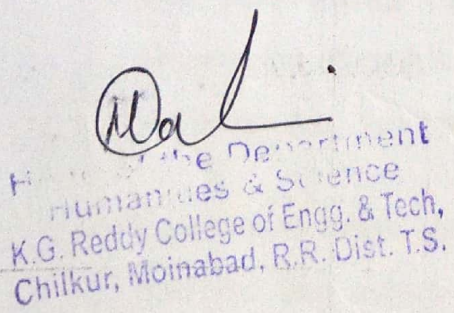 Head of the Department
Humanities & Science
K.G. Reddy College of Engg. & Tech,
Chilkur, Moinabad, R.R. Dist. T.S.